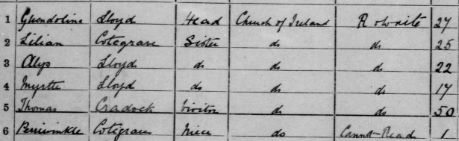 1 Gwendoline Lloyd Head Church of Ireland R & write 27
2 Lilian Cotegrave Sister do do 25
3 Alys Lloyd do do do 22
4 Myrtle Lloyd do do do 17
5 Thomas Cradock Visitor do do 50
6 Periwinkle Cotegrave Niece do Cannot Read 1